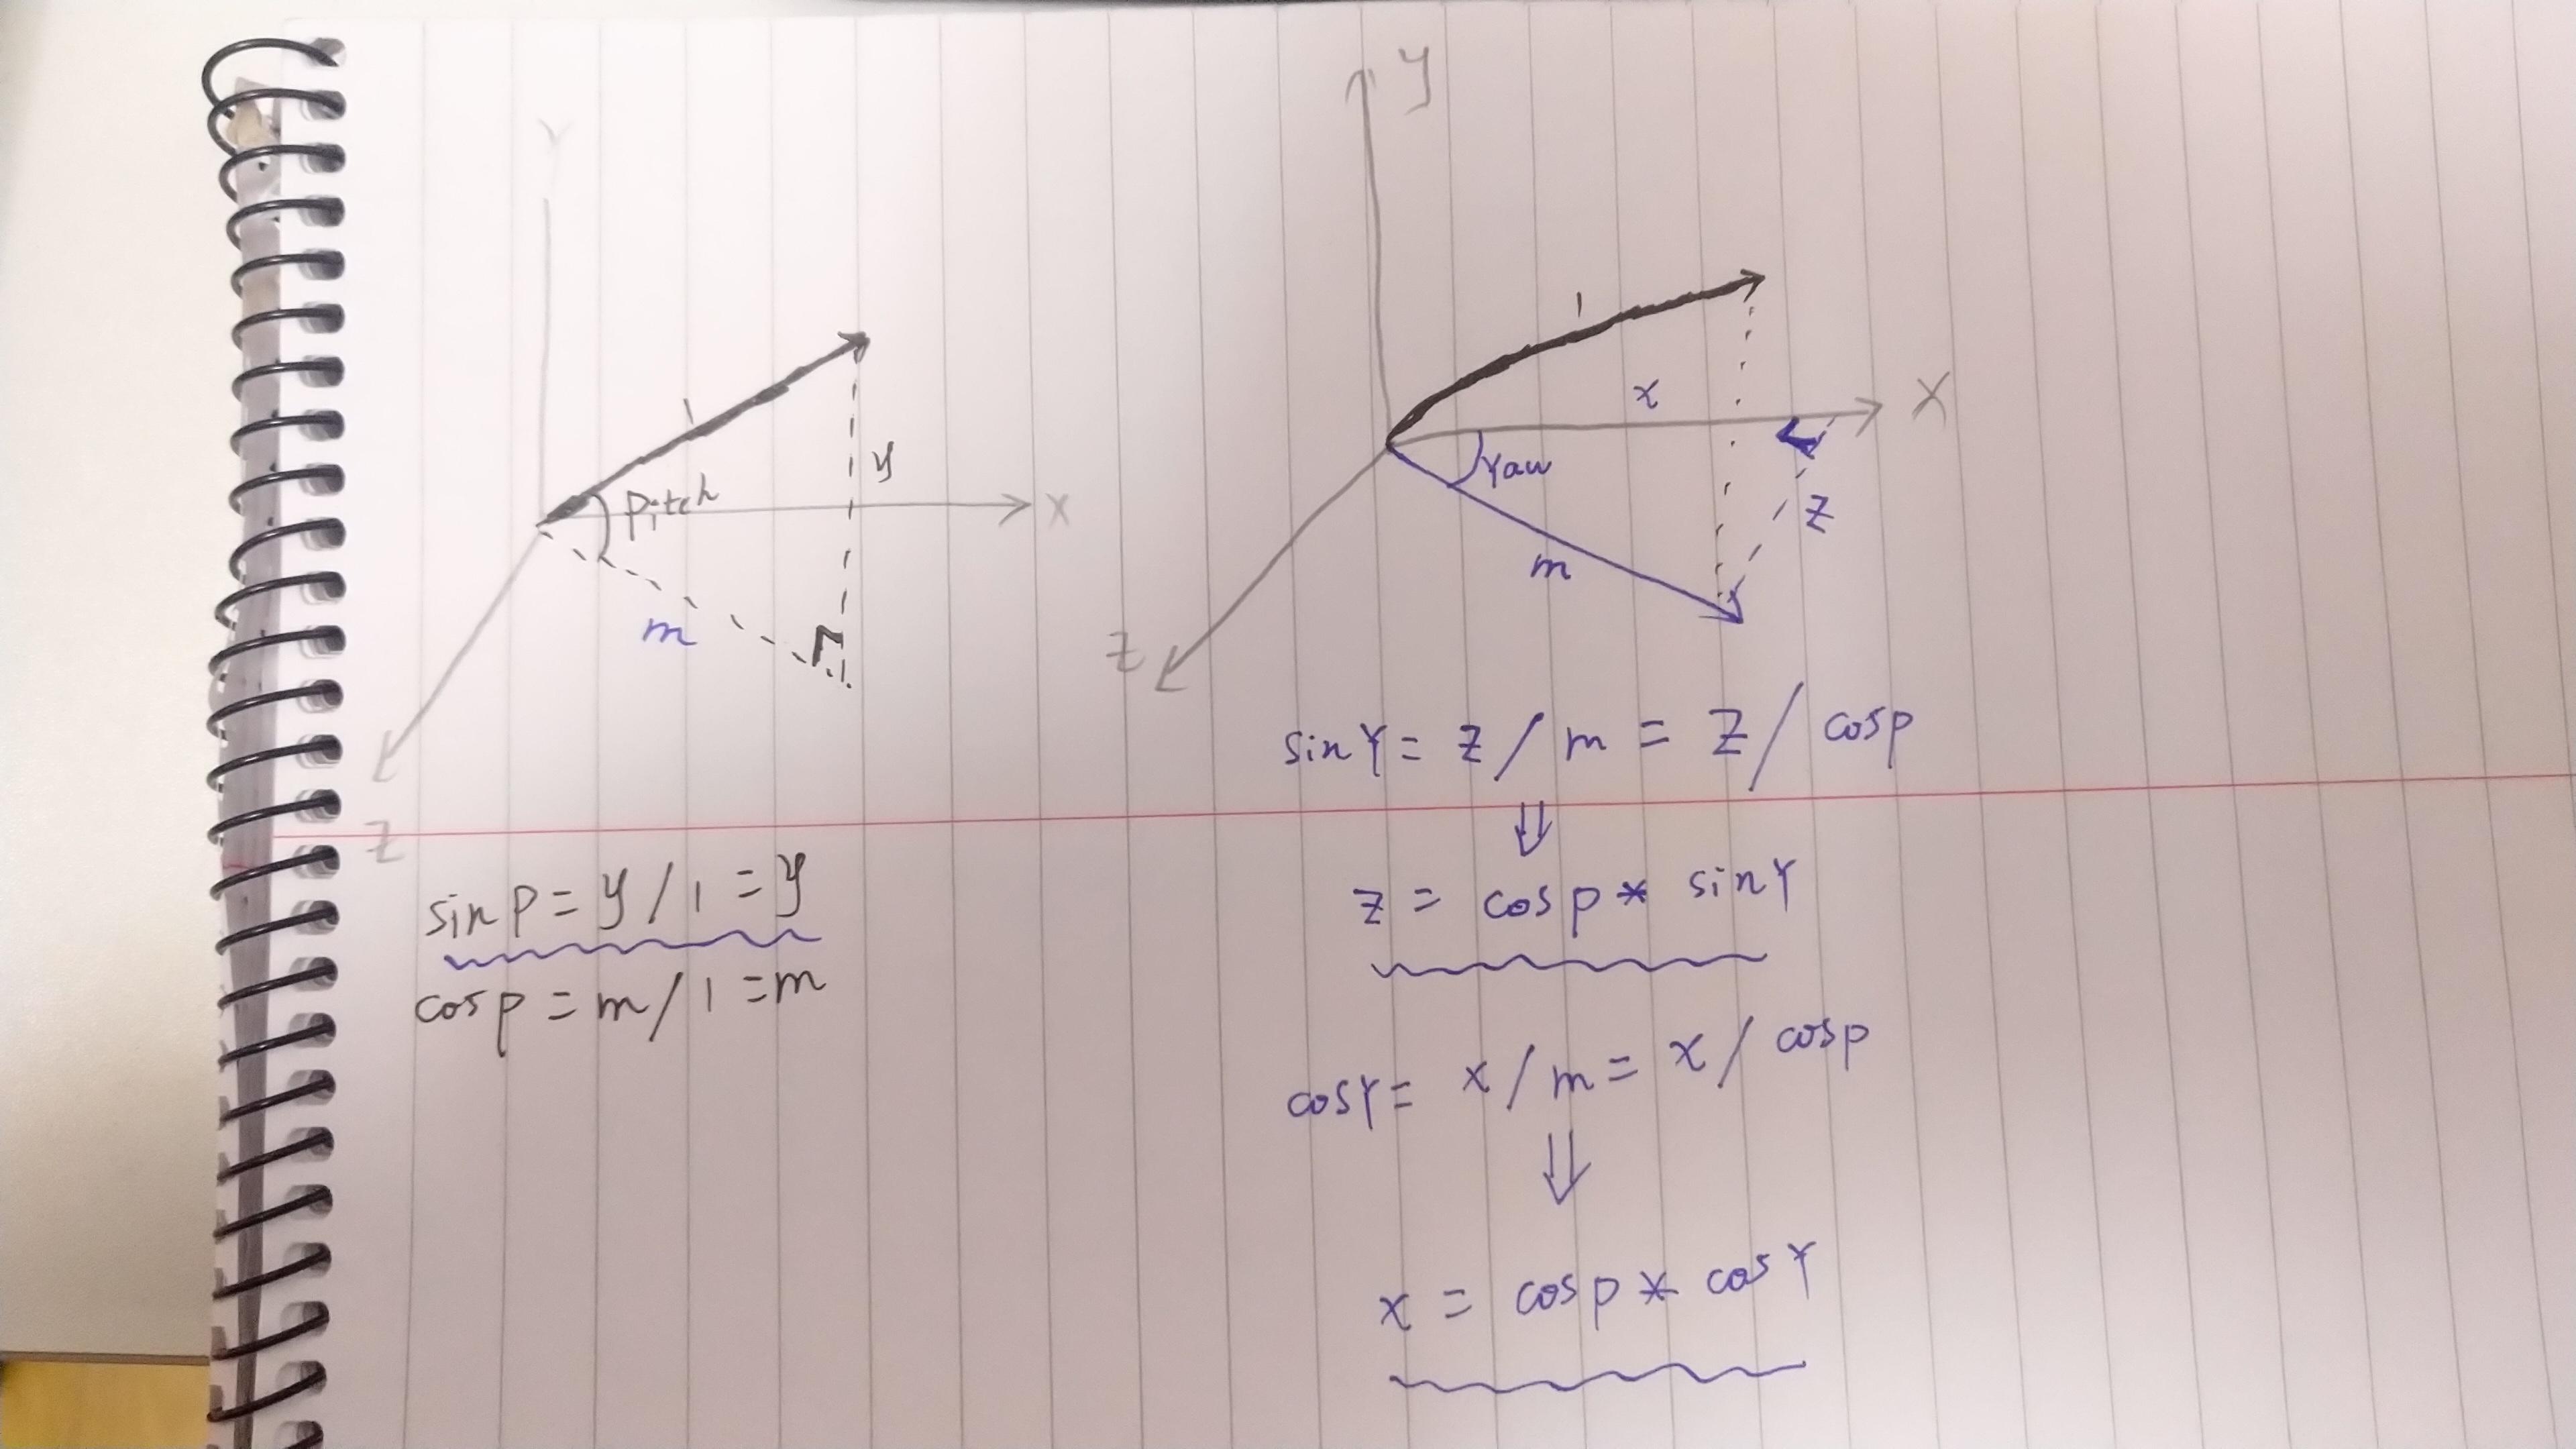 Y
1
y
Pitch
X
m
Z
sin P = y / 1 = y
cos p = m / 1 = m
y
1
x
X
Yaw
z
m
Z
sin Y = z / m = z / cos p
⇓
z = cos p * sin Y
cos Y = x / m = x / cos p
⇓
x = cos p * cos Y